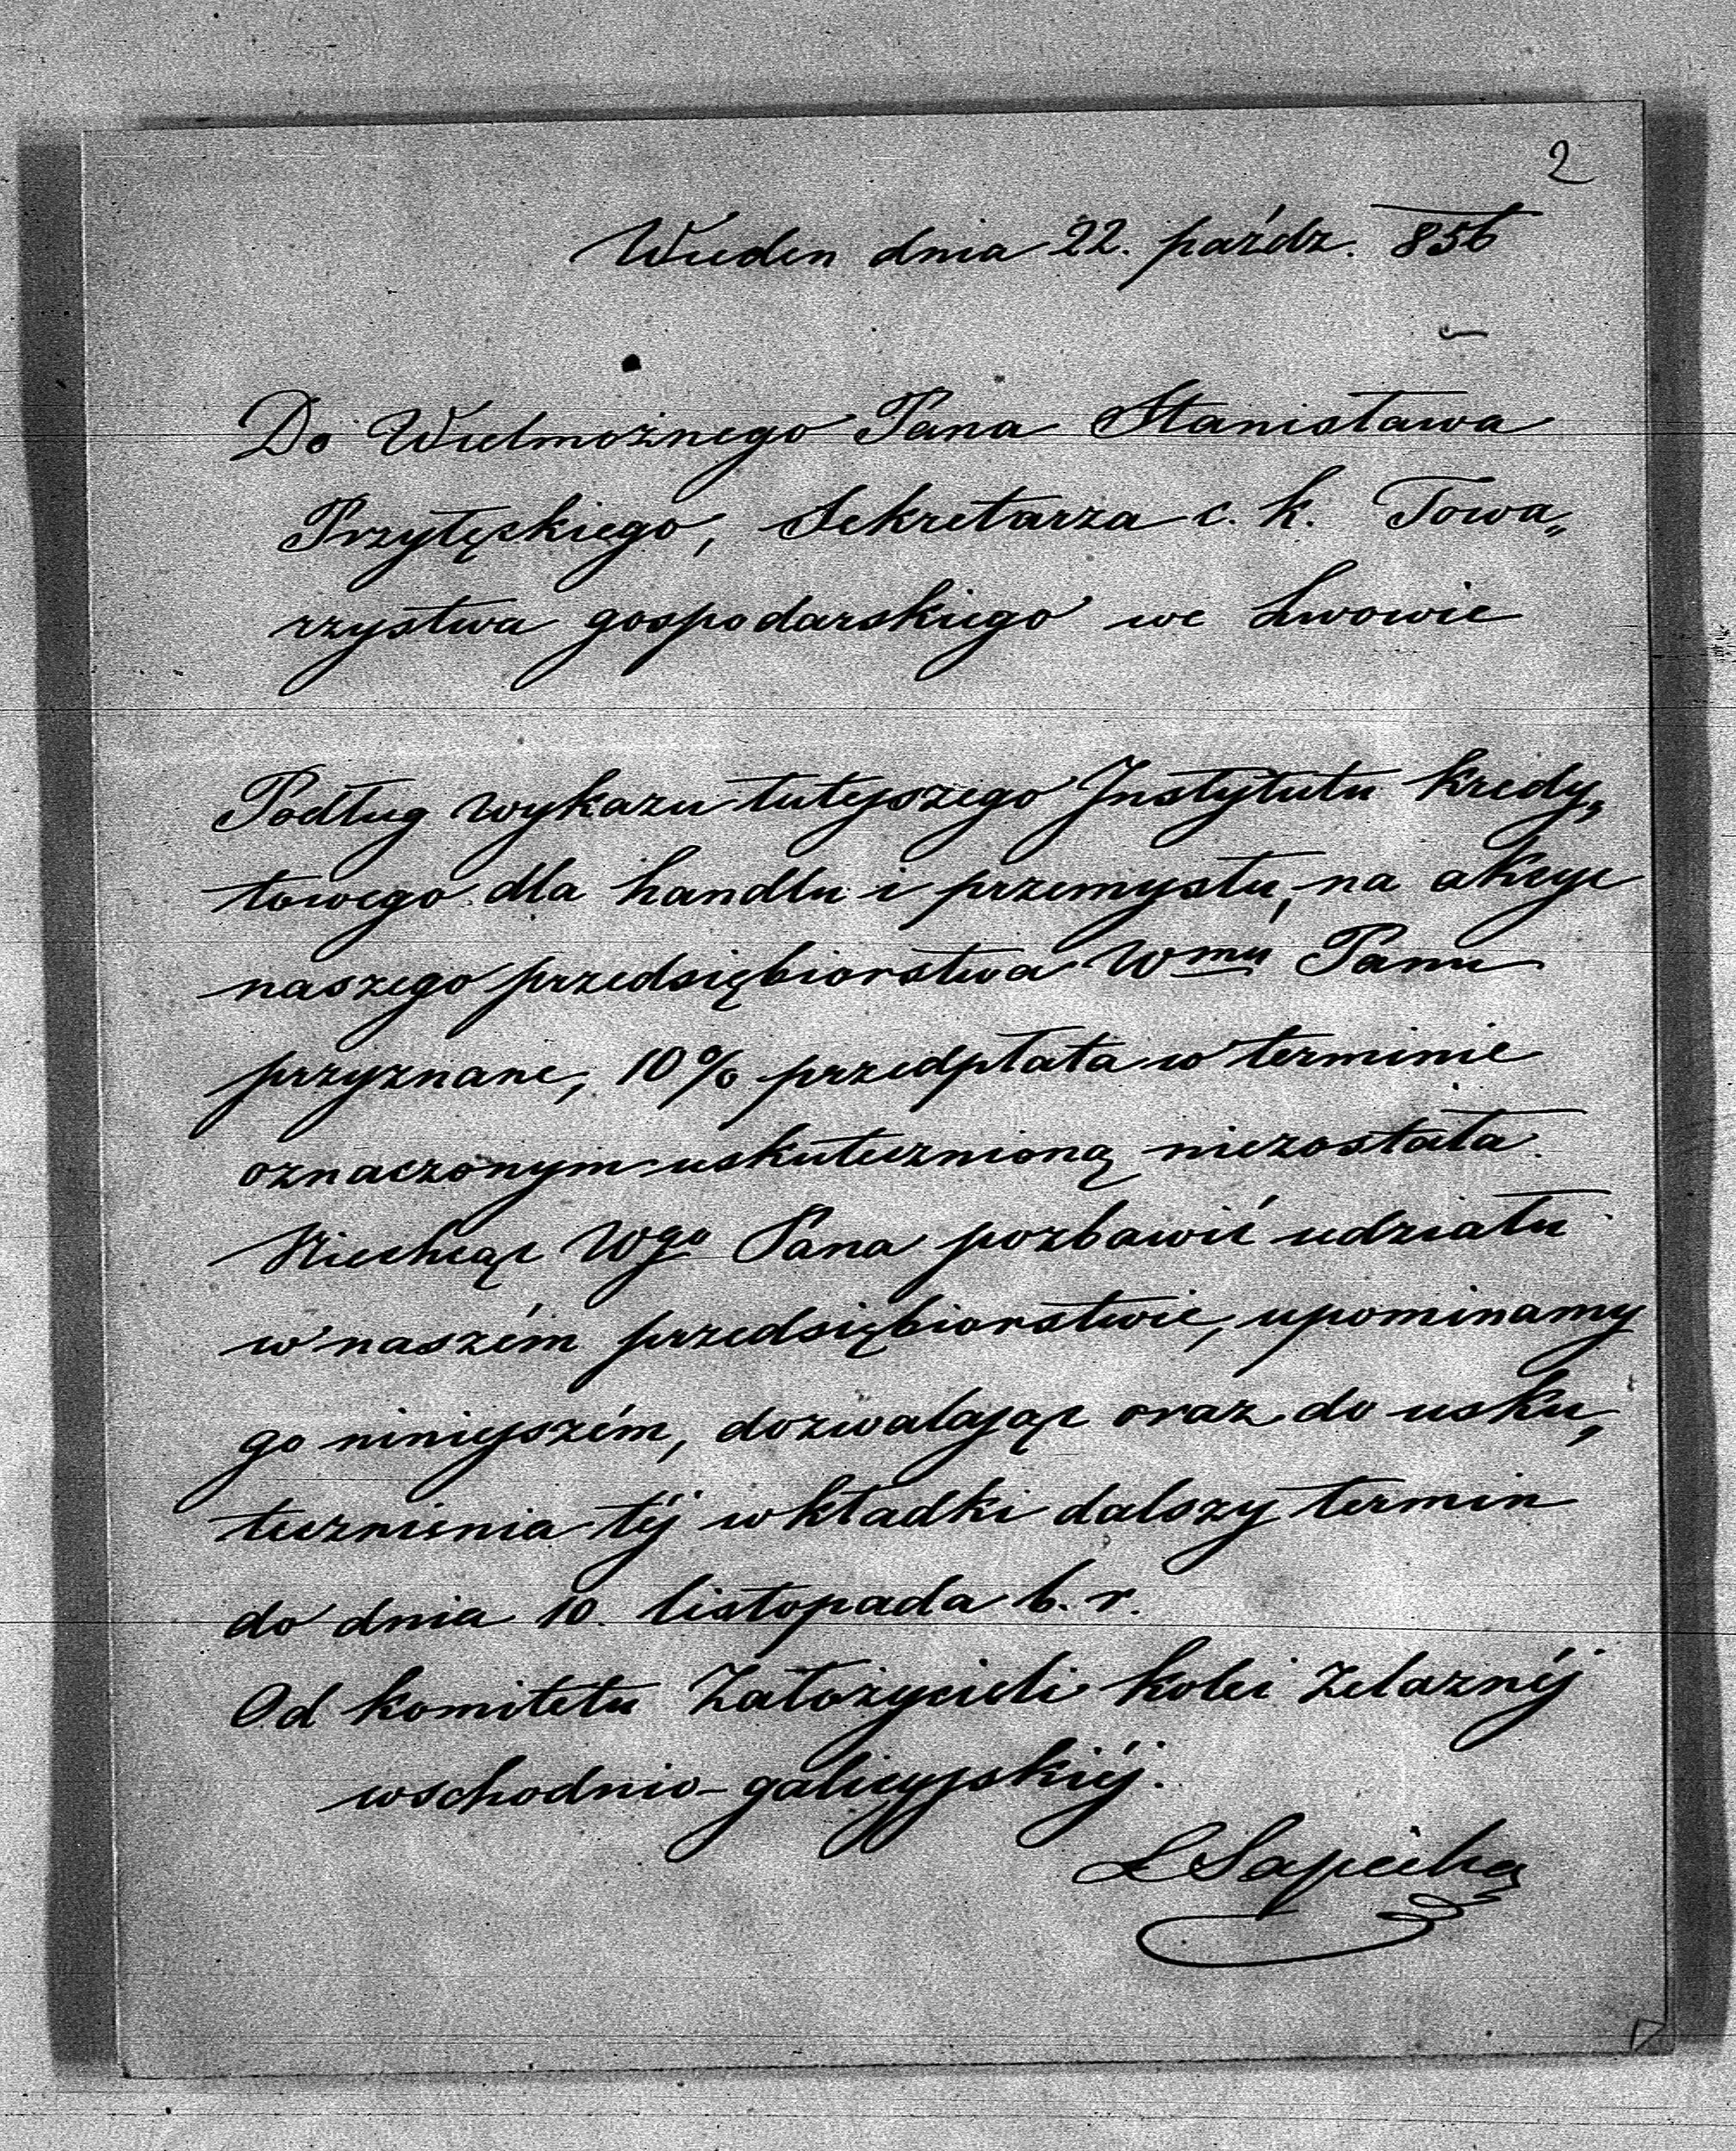 2
Wiedeń dnia 22. paźdz. 856
Do Wielmożnego Pana Stanisława
Przyłęckiego, Sekretarza c. k. Towa„
rzystwa gospodarskiego we Lwowie
Podług wykazu tutejszego Instytutu kredy„
towego dla handlu i przemysłu, na akcye
naszego przedsiębiorstwa Wmu Panu
przyznane, 10% przedpłata w terminie
oznaczonym uskutecznioną niezostała.
Niechcąc Wgo Pana pozbawić udziału
w naszém przedsiębiorstwie, upominamy
go niniejszém, dozwalając oraz do usku„
tecznienia téj wkładki dalszy termin
do dnia 10. listopada b. r.
Od komitetu Założycieli kolei żelaznéj
wschodnio-galicyjskiéj.
LSapieha